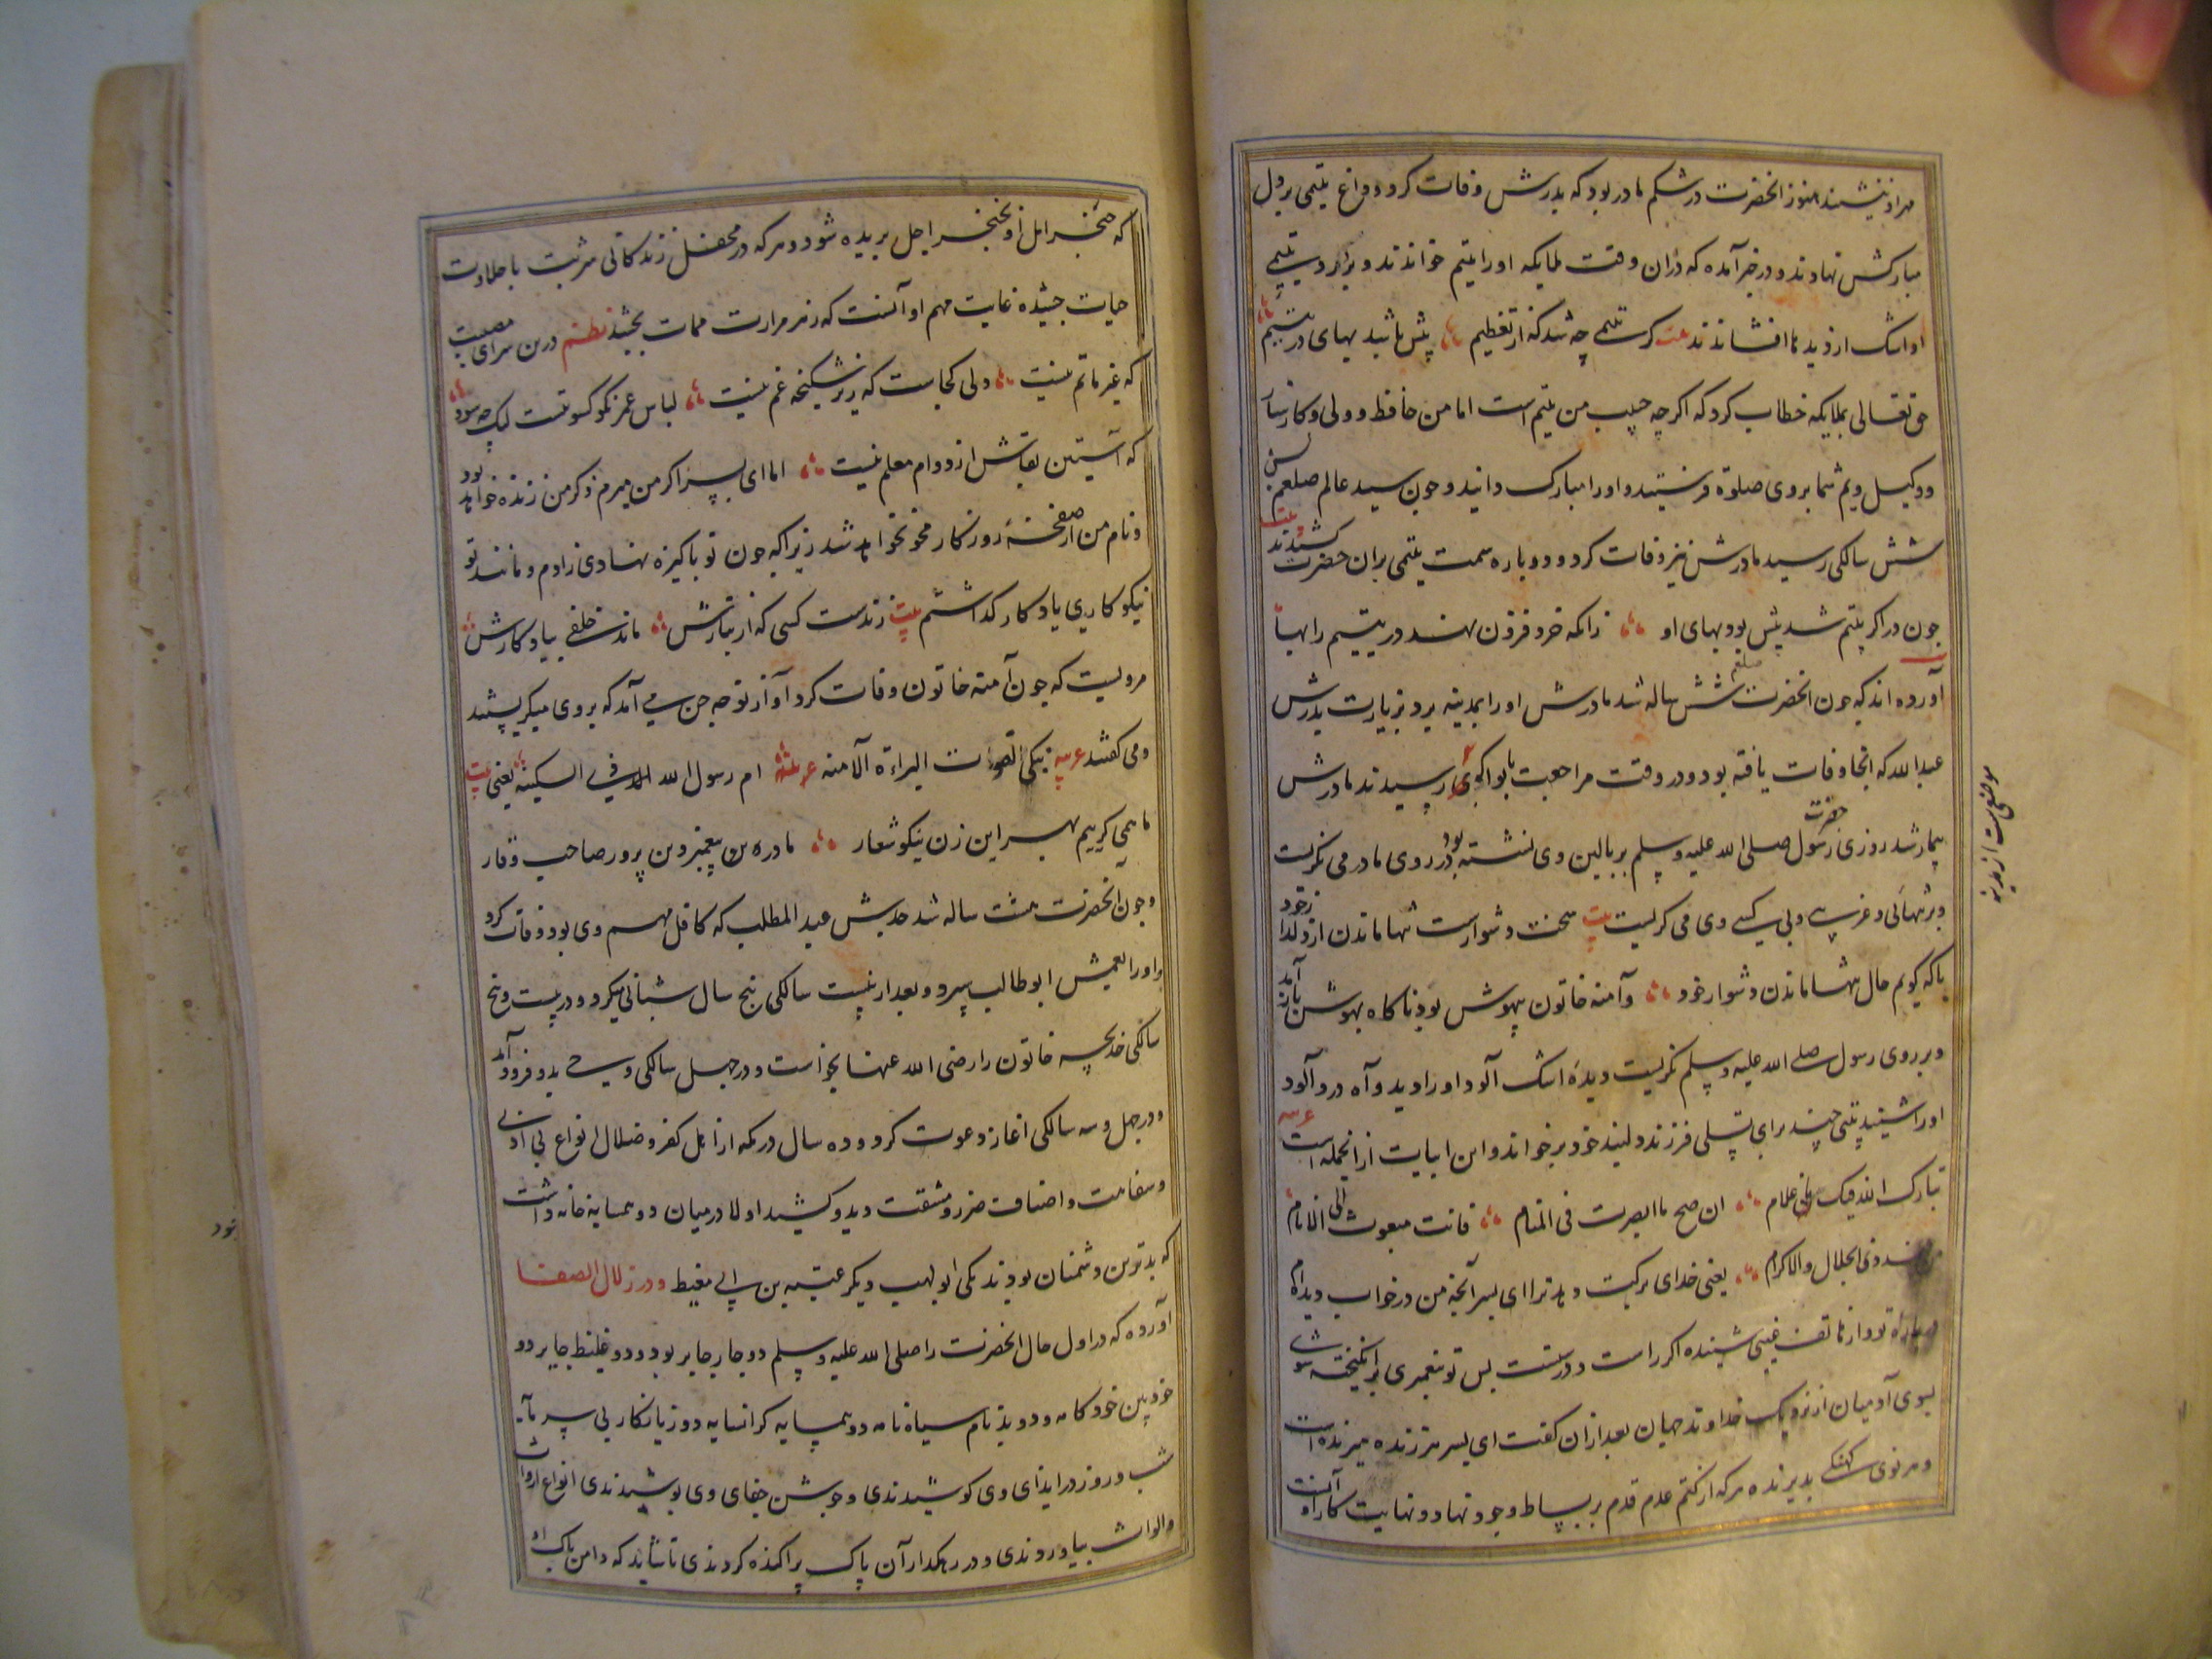 هنوز آنحضرت در شکم مادر بود که پدرش وفات کرد و داغ یتیمی بر دل
مبارکش نهادند و در خبر آمده که دران وقت ملایکه او را یتیم خواندند و برای وی
اشک از دیدها افشاندند بیت کر یتیمی چه شد که از تعظیم پیش باشد بهای در یتیم
حق تعالی بملایکه خطاب کرد که اکرچه حبیب من یتیم است اما من حافظ و ولی و کارساز
و وکیل ویم شما بروی صلوة فرستید و او را مبارک دانید و چون سید عالم صلعم بسن
شش سالکی رسید مادرش نیز وفات کرد و دوباره سمت یتیمی بران حضرت کشیدند بیت
چون در اکر یتیم شد بیش بود بهای او زانکه خرد فزون نهند در یتیم را بها
آورده اند که چون آنحضرت صلعم شش ساله شد مادرش او را بمدینه برد بزیارت پدرش
عبدالله که آنجا وفات یافته بود و در وقت مراجعت بابوا رسیدند مادرش
موضعی است از مدینه
بیمار شد روزی حضرت رسول صلی الله علیه وسلم بر بالین وی نشسته بود در روی مادر می نکریست
و بر تنهائی و غریبی و بی کسی وی می کریست بیت سخت دشوارست تنها ماندن از دلدار خود
با که کویم حال تنها ماندن دشوار خود و آمنه خاتون بیهوش بود ناکاه بهوش باز آمد
و بر روی رسول صلی الله علیه وسلم نکریست دیده اشک آلود او را دید و آه درد آلود
او را شنید بیتی چند برای تسلی فرزند دلبند خود برخواند و این ابیات از انجمله است عربیه
تبارک الله فیک من غلام ان صح ما ابصرت فی المنام فانت مبعوث الی الانام
من عند ذی الجلال والاکرام یعنی خدای برکت دهاد ترا ای پسر آنچه من در خواب دیده ام
تو و از هاتف غیبی شنیده اکر راست و درستست پس تو پیغمبری برانکیخته شوی
بسوی آدمیان از نزدیک خداوند جهان بعد ازان کفت ای پسر هر زنده میرنده است
و هر نوی کهنکی پذیرنده هر که از کتم عدم قدم بر بساط وجود نهاد و نهایت کار او آنست
که حنجر امل او بخنجر اجل بریده شود و هر که در محفل زندکانی شربت با حلاوت
حیات چشیده غایت مهم او آنست که زهر مرارت ممات بچشد نظم درین سرای مصیبت
که غیر ماتم نیست دلی کجاست که زیر شکنجه غم نیست لباس عمر نکو کسوتست لیک چه سود
که آستین بقاش از دوام معلم نیست اما ای پسر اکر من میرم ذکر من زنده خواهد بود
و نام من از صفحه روزکار محو نخواهد شد زیراکه چون تو پاکیزه نهادی زادم و مانند تو
نیکو کاری یادکار کذاشتم بیت زندست کسی که از تبارش ماند خلفی بیادکارش
مرویست که چون آمنه خاتون وفات کرد آواز نوحه جن می آمد که بروی میکریستند
و می کفتند عربیه نبکی الفتاة البراة الآمنه ام رسول الله ذی السکینه یعنی بیت
ما همی کرییم بهر این زن نیکو شعار مادر پیغمبر دین پرور صاحب وقار
و چون آنحضرت هشت ساله شد جدش عبد المطلب که کافل مهم وی بود وفات کرد
و او را بعمش ابوطالب سپرد و بعد از بیست سالکی پنج سال شبانی میکرد و در بیست و پنج
سالکی خدیجه خاتون را رضی الله عنها بخواست و در چهل سالکی وحی بدو فرود آمد
و در چهل و سه سالکی آغاز دعوت کرد و ده سال در مکه از اهل کفر و ضلال انواع بی ادبی
و سفاهت و اصناف ضرر و مشقت دید و کشید اولا در میان دو همسایه خانه داشت
که بدترین دشمنان بودند یکی ابولهب دیکر عتبه بن ابی معیط و در زلال الصفا
آورده که در اول حال آنحضرت را صلی الله علیه وسلم دو جار جایر بود و دو غلیظ جابر دو
خودبین خودکامه و دو بدنام سیاه نامه دو همسایه کرانسایه دو زیانکار بی سرمایه
شب و روز در ایذای وی کوشیدندی و جوشن جفای وی پوشیدندی انواع ارواث
و الواث بیاوردندی و در رهکذار آن پاک پراکنده کردندی تا شاید که دامن پاک او
شود